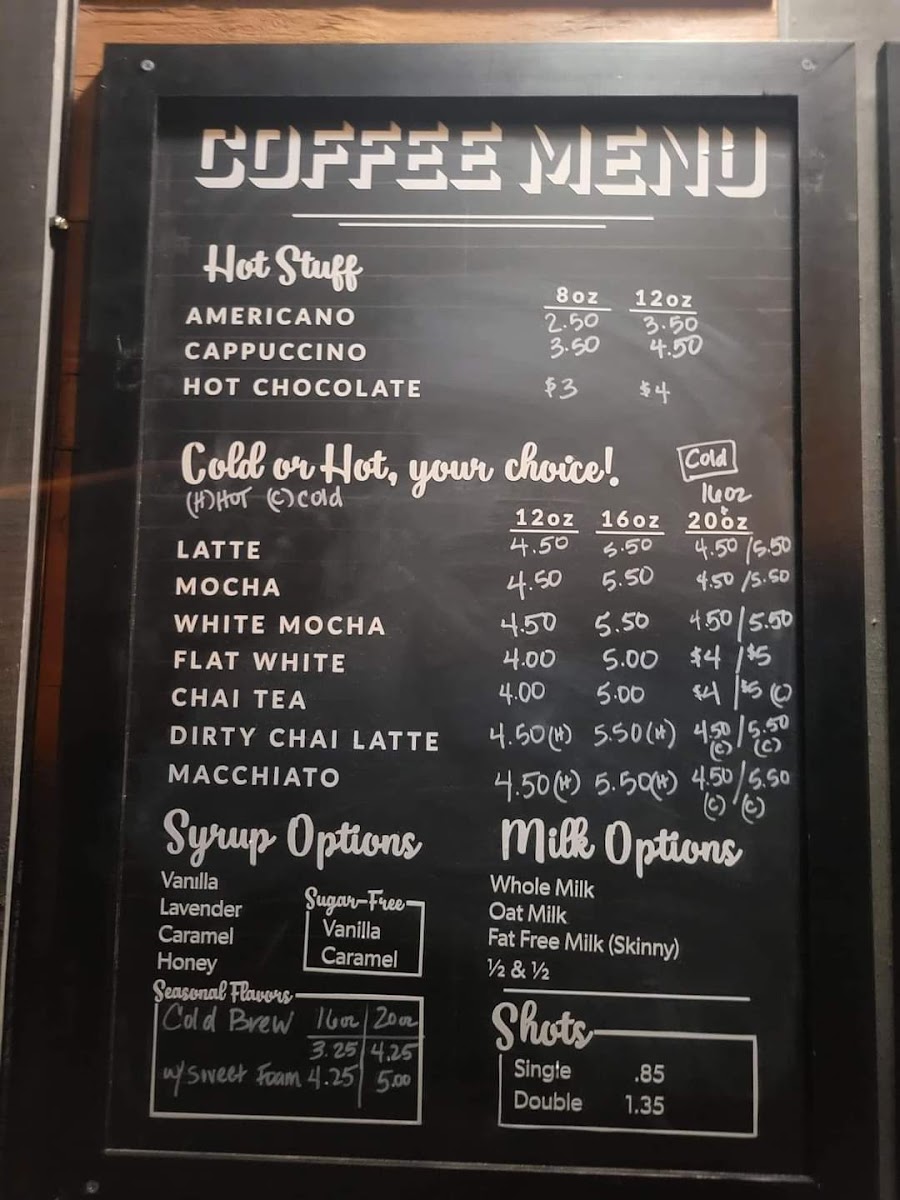 COFFEE MENU
Hot Stuff
8oz 12oz
AMERICANO 2.50 3.50
CAPPUCCINO 3.50 4.50
HOT CHOCOLATE $3 $4
Cold or Hot, your choice! Cold
(H)HOT (C)Cold 16oz
12oz 16oz & 20oz
LATTE 4.50 5.50 4.50/5.50
MOCHA 4.50 5.50 4.50/5.50
WHITE MOCHA 4.50 5.50 4.50/5.50
FLAT WHITE 4.00 5.00 $4/$5
CHAI TEA 4.00 5.00 $4/$5 (C)
DIRTY CHAI LATTE 4.50(H) 5.50(H) 4.50/5.50
(C) (C)
MACCHIATO 4.50(H) 5.50(H) 4.50/5.50
(C) (C)
Syrup Options
Vanilla
Lavender
Caramel
Honey
Sugar-Free
Vanilla
Caramel
Seasonal Flavors
Cold Brew 16oz 20oz
3.25 4.25
w/ Sweet Foam 4.25 5.00
Milk Options
Whole Milk
Oat Milk
Fat Free Milk (Skinny)
½ & ½
Shots
Single .85
Double 1.35